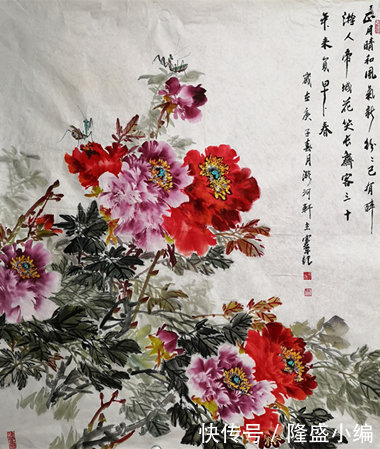 正月晴和風氣新紛〻已有醉
遊人帝城花笑長齋客三十
年来負早春
歲在庚子春月 河軒主
快传号 / 隆盛小编